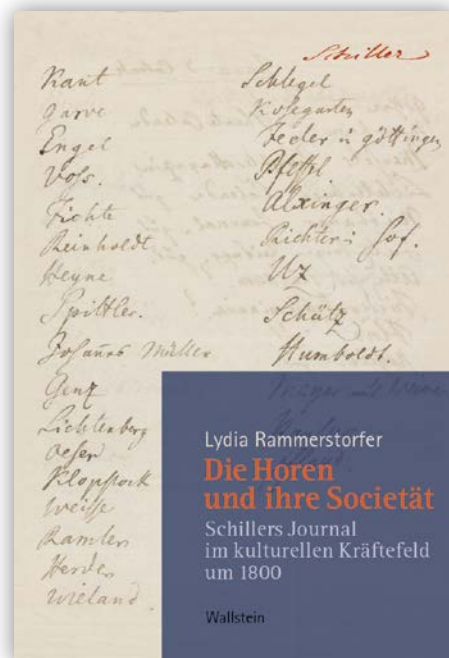 Schiller
Kant
Garve
Engel
Voss.
Fichte
Reinholdt
Heyne
Spittler.
Johañes Müller
Genz
Lichtenberg
Oeser
Klopstock
Weisse
Ramler
Herder
Wieland
Schlegel
Kosegarten
Feder in göttingen
Pfeffel.
Alxinger.
Richter in Hof.
Uz
Schütz
Humboldt.
Lydia Rammerstorfer
Die Horen
und ihre Societät
Schillers Journal
im kulturellen Kräftefeld
um 1800
Wallstein